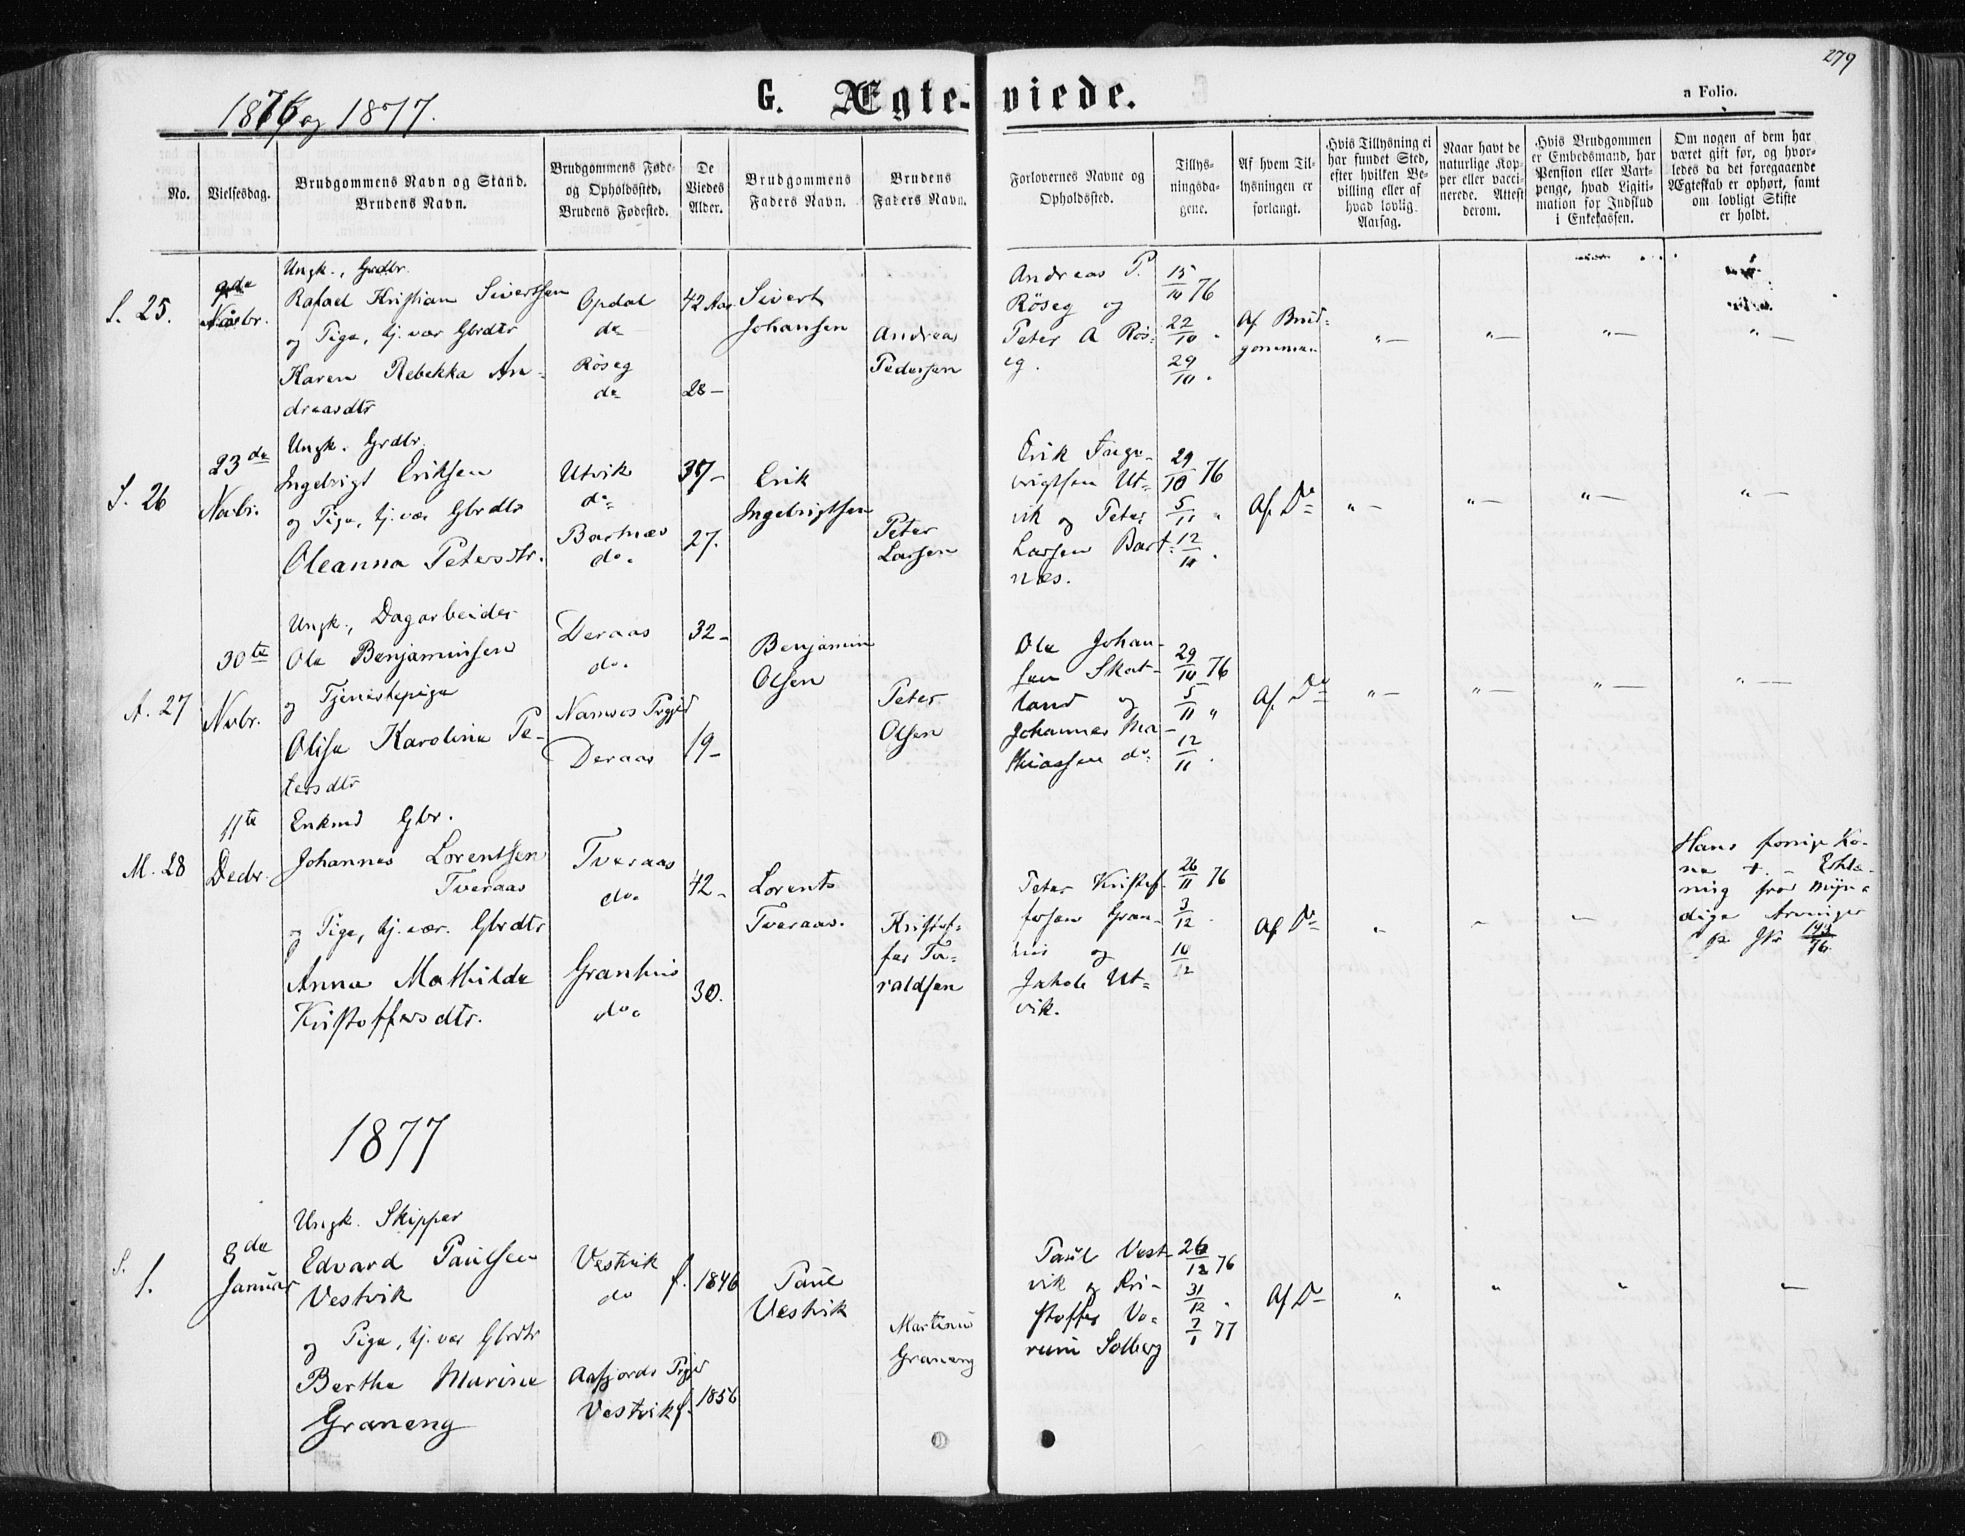 279
1876 og 1877.
G. Ægte-viede.
a Folio.
No.
Vielsesdag.
Brudgommens Navn og Stand.
Brudens Navn.
Brudgommens Føde-
og Opholdssted.
Brudens Fødested.
De
Viedes
Alder.
Brudgommens
Faders Navn.
Brudens
Faders Navn.
Forlovernes Navne og
Opholdssted.
Tillys-
ningsda-
gene.
Af hvem Til-
lysningen er
forlangt.
Hvis Tillysning ei
har fundet Sted,
efter hvilken Be-
villing eller af
hvad lovlig
Aarsag.
Naar havt de
naturlige Kop-
per eller vacci-
nerede. Attest
derom.
Hvis Brudgommen
er Embedsmand, har
Pension eller Vart-
penge, hvad Ligiti-
mation for Indskud
i Enkekassen.
Om nogen af dem har
været gift før, og hvor-
ledes da det foregaaende
Ægteskab er ophørt, samt
om lovligt Skifte
er holdt.
S. 25.
9de
Novbr.
Ungk., Grdbr.
Rafael Kristian Sivertsen
og Pige, hj. vær Gbrdtr
Karen Rebekka An-
dreasdtr
Opdal
do
Røseg
do
42 Aar
28 –
Sivert
Johansen
Andreas
Pedersen
Andreas P.
Røseg og
Peter A Røs-
eg.
15/10 76
22/10 "
29/10 "
Af Brud-
gommen
" —
" —
" —
" —
S. 26
23de
Novbr.
Ungk. Grdbr.
Ingebrigt Eriksen
og Pige, hj. vær Gbrdtr
Oleanna Petersdtr.
Utvik
do
Bartnæs
do.
37 –
27.
Erik
Ingebrigtsen
Peter
Larsen
Erik Inge-
brigtsen Ut-
vik og Peter
Larsen Bart-
næs.
29/10 76
5/11 "
12/11 "
Af Do
" —
" —
" —
" —
A. 27
30te
Novbr.
Ungk., Dagarbeider
Ole Benjaminsen
og Tjenestepige
Olise Karoline Pe-
tersdtr
Deraas
do.
Namsos Prgjd
Deraas
32 –
19 –
Benjamin
Olsen
Peter
Olsen
Ole Johan-
sen Skat-
land og
Johannes Ma-
thiassen do
29/10 76
5/11 "
12/11 "
Af Do
" —
" —
" —
" —
M. 28
11te
Decbr.
Enkmd Gbr.
Johannes Lorentsen
Tveraas
og Pige, hj. vær. Gbrdtr
Anna Mathilde
Kristoffersdtr.
Tveraas
do.
Granhus
do.
42 –
30.
Lorents
Tveraas.
Kristof-
fer To-
raldsen
Peter Kristof-
fersen Gran-
hus og
Jakob Ut-
vik.
26/11 76
3/12 "
10/12
Af Do
Hans forrige Ko-
ne † – Erklæ-
ring fra myn-
dige Arvinger
1877
S. 1.
8de
Januar
Ungk. Skipper
Edvard Paulsen
Vestvik
og Pige, hj. vær Gbrdtr
Berthe Marine
Graneng
Vestvik
do
Aafjords Prgjd
Vestvik
f. 1846
f. 1856
Paul
Vestvik
Martinus
Graneng
Paul Vest-
vik og Kri-
stoffer Vo-
rum Solberg
26/12 76
31/12 "
7/1 77
Af Do
"
"
"
—